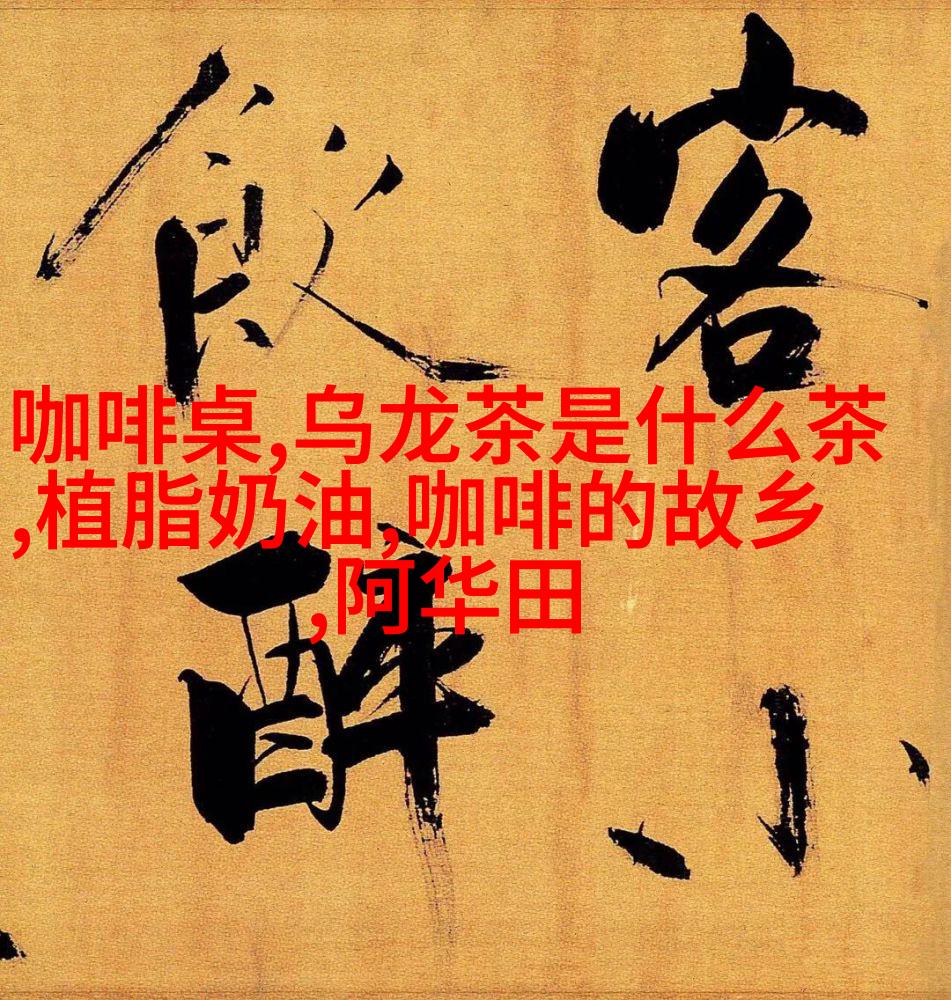 客小
飲醉
咖啡桌,乌龙茶是什么茶
,植脂奶油,咖啡的故乡
,阿华田